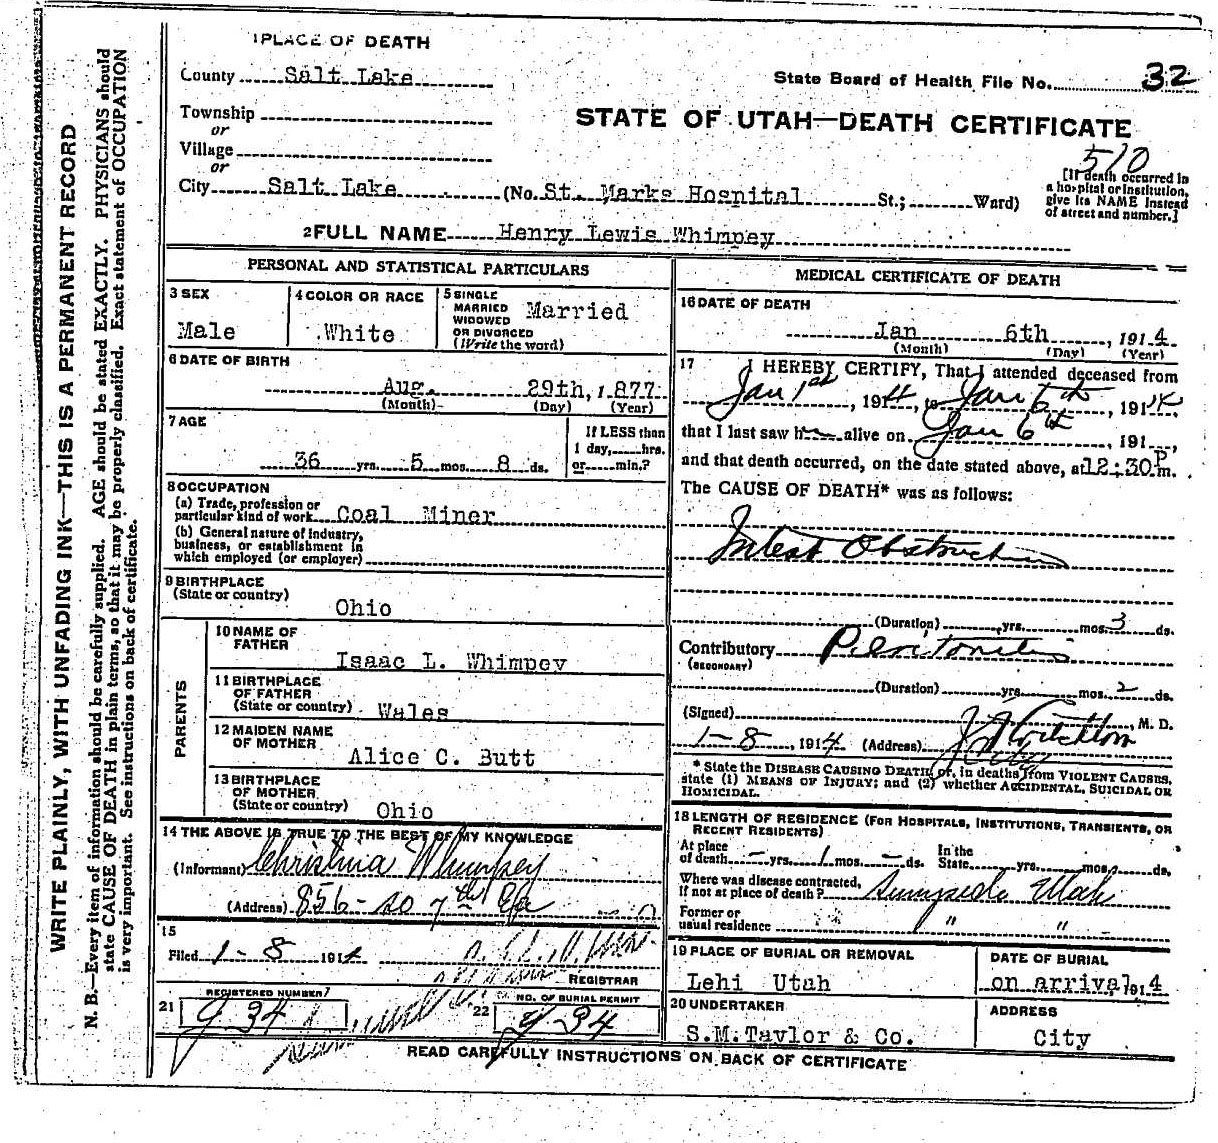 1 PLACE OF DEATH
County Salt Lake
State Board of Health File No. 32
Township
or
Village
or
City Salt Lake (No. St. Marks Hospital St.; Ward)
STATE OF UTAH—DEATH CERTIFICATE
510
[If death occurred in
a hospital or institution,
give its NAME instead
of street and number.]
2 FULL NAME Henry Lewis Whimpey
PERSONAL AND STATISTICAL PARTICULARS
3 SEX
Male
4 COLOR OR RACE
White
5 SINGLE
MARRIED
WIDOWED
OR DIVORCED
(Write the word)
Married
6 DATE OF BIRTH
Aug. 29th, 1877
(Month) (Day) (Year)
7 AGE
36 yrs. 5 mos. 8 ds.
If LESS than
1 day, hrs.
or min.?
8 OCCUPATION
(a) Trade, profession or
particular kind of work Coal Miner
(b) General nature of industry,
business, or establishment in
which employed (or employer)
9 BIRTHPLACE
(State or country)
Ohio
PARENTS
10 NAME OF
FATHER
Isaac L. Whimpey
11 BIRTHPLACE
OF FATHER
(State or country) Wales
12 MAIDEN NAME
OF MOTHER
Alice C. Butt
13 BIRTHPLACE
OF MOTHER
(State or country) Ohio
14 THE ABOVE IS TRUE TO THE BEST OF MY KNOWLEDGE
(Informant) Christina Whimpey
(Address) 856 - so 7th
15
Filed 1-8 1914
REGISTRAR
21 REGISTERED NUMBER
934
22 NO. OF BURIAL PERMIT
934
MEDICAL CERTIFICATE OF DEATH
16 DATE OF DEATH
Jan 6th, 1914
(Month) (Day) (Year)
17 I HEREBY CERTIFY, That I attended deceased from
Jan 1st, 1914, to Jan 6th, 1914,
that I last saw h alive on Jan 6th, 191 ,
and that death occurred, on the date stated above, at 12:30 P m.
The CAUSE OF DEATH* was as follows:
Intest Obstruction
(Duration) yrs. mos. 3 ds.
Contributory Peritonitis
(SECONDARY)
(Duration) yrs. mos. 2 ds.
(Signed) , M. D.
1-8, 1914 (Address) City
* State the DISEASE CAUSING DEATH, or, in deaths from VIOLENT CAUSES,
state (1) MEANS OF INJURY; and (2) whether ACCIDENTAL, SUICIDAL OR
HOMICIDAL.
18 LENGTH OF RESIDENCE (FOR HOSPITALS, INSTITUTIONS, TRANSIENTS, OR
RECENT RESIDENTS)
At place
of death - yrs. 1 mos. - ds. In the
State yrs. mos. ds.
Where was disease contracted,
If not at place of death? Sunnyside Utah
Former or
usual residence " "
19 PLACE OF BURIAL OR REMOVAL
Lehi Utah
DATE OF BURIAL
on arrival 1914
20 UNDERTAKER
S.M. Taylor & Co.
ADDRESS
City
READ CAREFULLY INSTRUCTIONS ON BACK OF CERTIFICATE
WRITE PLAINLY, WITH UNFADING INK—THIS IS A PERMANENT RECORD
N. B.—Every item of information should be carefully supplied. AGE should be stated EXACTLY. PHYSICIANS should
state CAUSE OF DEATH in plain terms, so that it may be properly classified. Exact statement of OCCUPATION
is very important. See instructions on back of certificate.